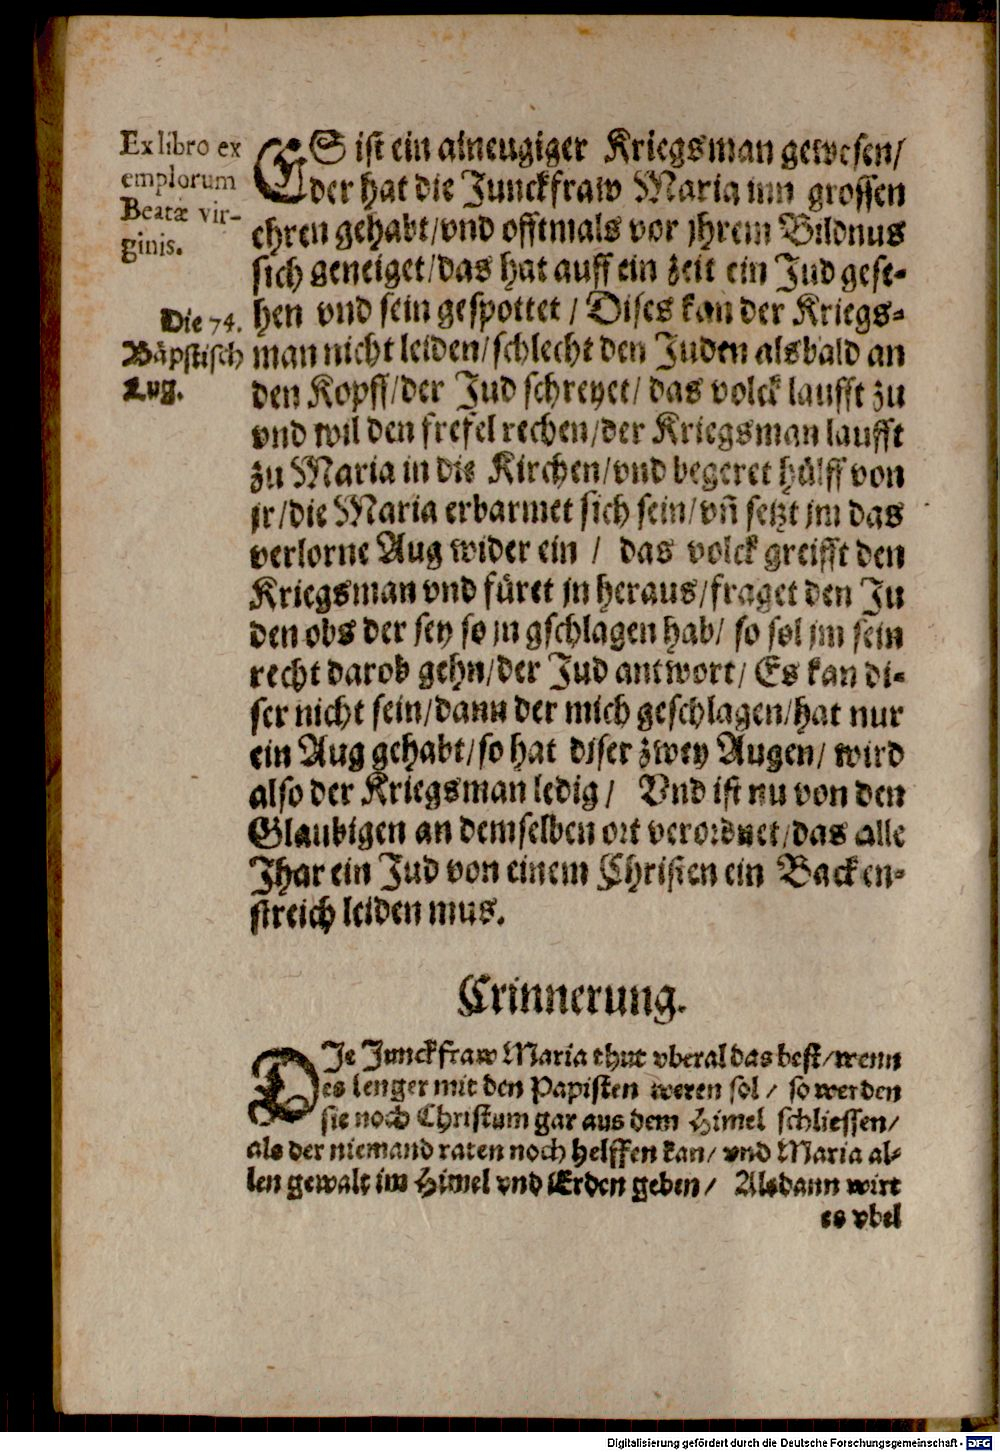 Ex libro ex
emplorum
Beatæ vir-
ginis.
Die 74.
Bäpstisch
Lug.
ES ist ein aineugiger Kriegsman gewesen/
der hat die Junckfraw Maria inn grossen
ehren gehabt/vnd offtmals vor jhrem Bildnus
sich geneiget/das hat auff ein zeit ein Jud gese-
hen vnd sein gespottet / Dises kan der Kriegs-
man nicht leiden/schlecht den Juden alsbald an
den Kopff/der Jud schreyet/ das volck laufft zu
vnd wil den frefel rechen/der Kriegsman laufft
zu Maria in die Kirchen/vnd begeret hülff von
jr/die Maria erbarmet sich sein/vñ setzt jm das
verlorne Aug wider ein / das volck greifft den
Kriegsman vnd füret jn heraus/fraget den Ju
den obs der sey so jn gschlagen hab/ so sol jm sein
recht darob gehn/der Jud antwort/ Es kan di-
ser nicht sein/dann der mich geschlagen/hat nur
ein Aug gehabt/so hat diser zwey Augen/ wird
also der Kriegsman ledig / Vnd ist nu von den
Glaubigen an demselben ort verordnet/das alle
Jhar ein Jud von einem Christen ein Backen-
streich leiden mus.
Erinnerung.
DJe Junckfraw Maria thut vberal das best/wenn
es lenger mit den Papisten weren sol / so werden
sie noch Christum gar aus dem Himel schliessen/
als der niemand raten noch helffen kan/ vnd Maria al-
len gewalt im Himel vnd Erden geben / Alsdann wirt
es vbel
Digitalisierung gefördert durch die Deutsche Forschungsgemeinschaft - DFG